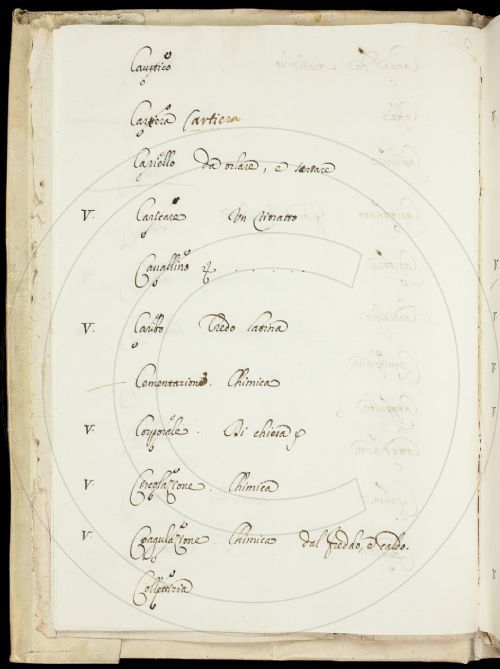 Caustico
Cartiera Cartiera
Capiello da orlare, e serrare
V. Carteare Un Ritratto
Cavallino
V. Credo latina
Cementazione. Chimica
V. Corporale. Di chiesa
V. Circolazione. Chimica
V. Coagulazione Chimica dal freddo, e caldo.
Collettizia